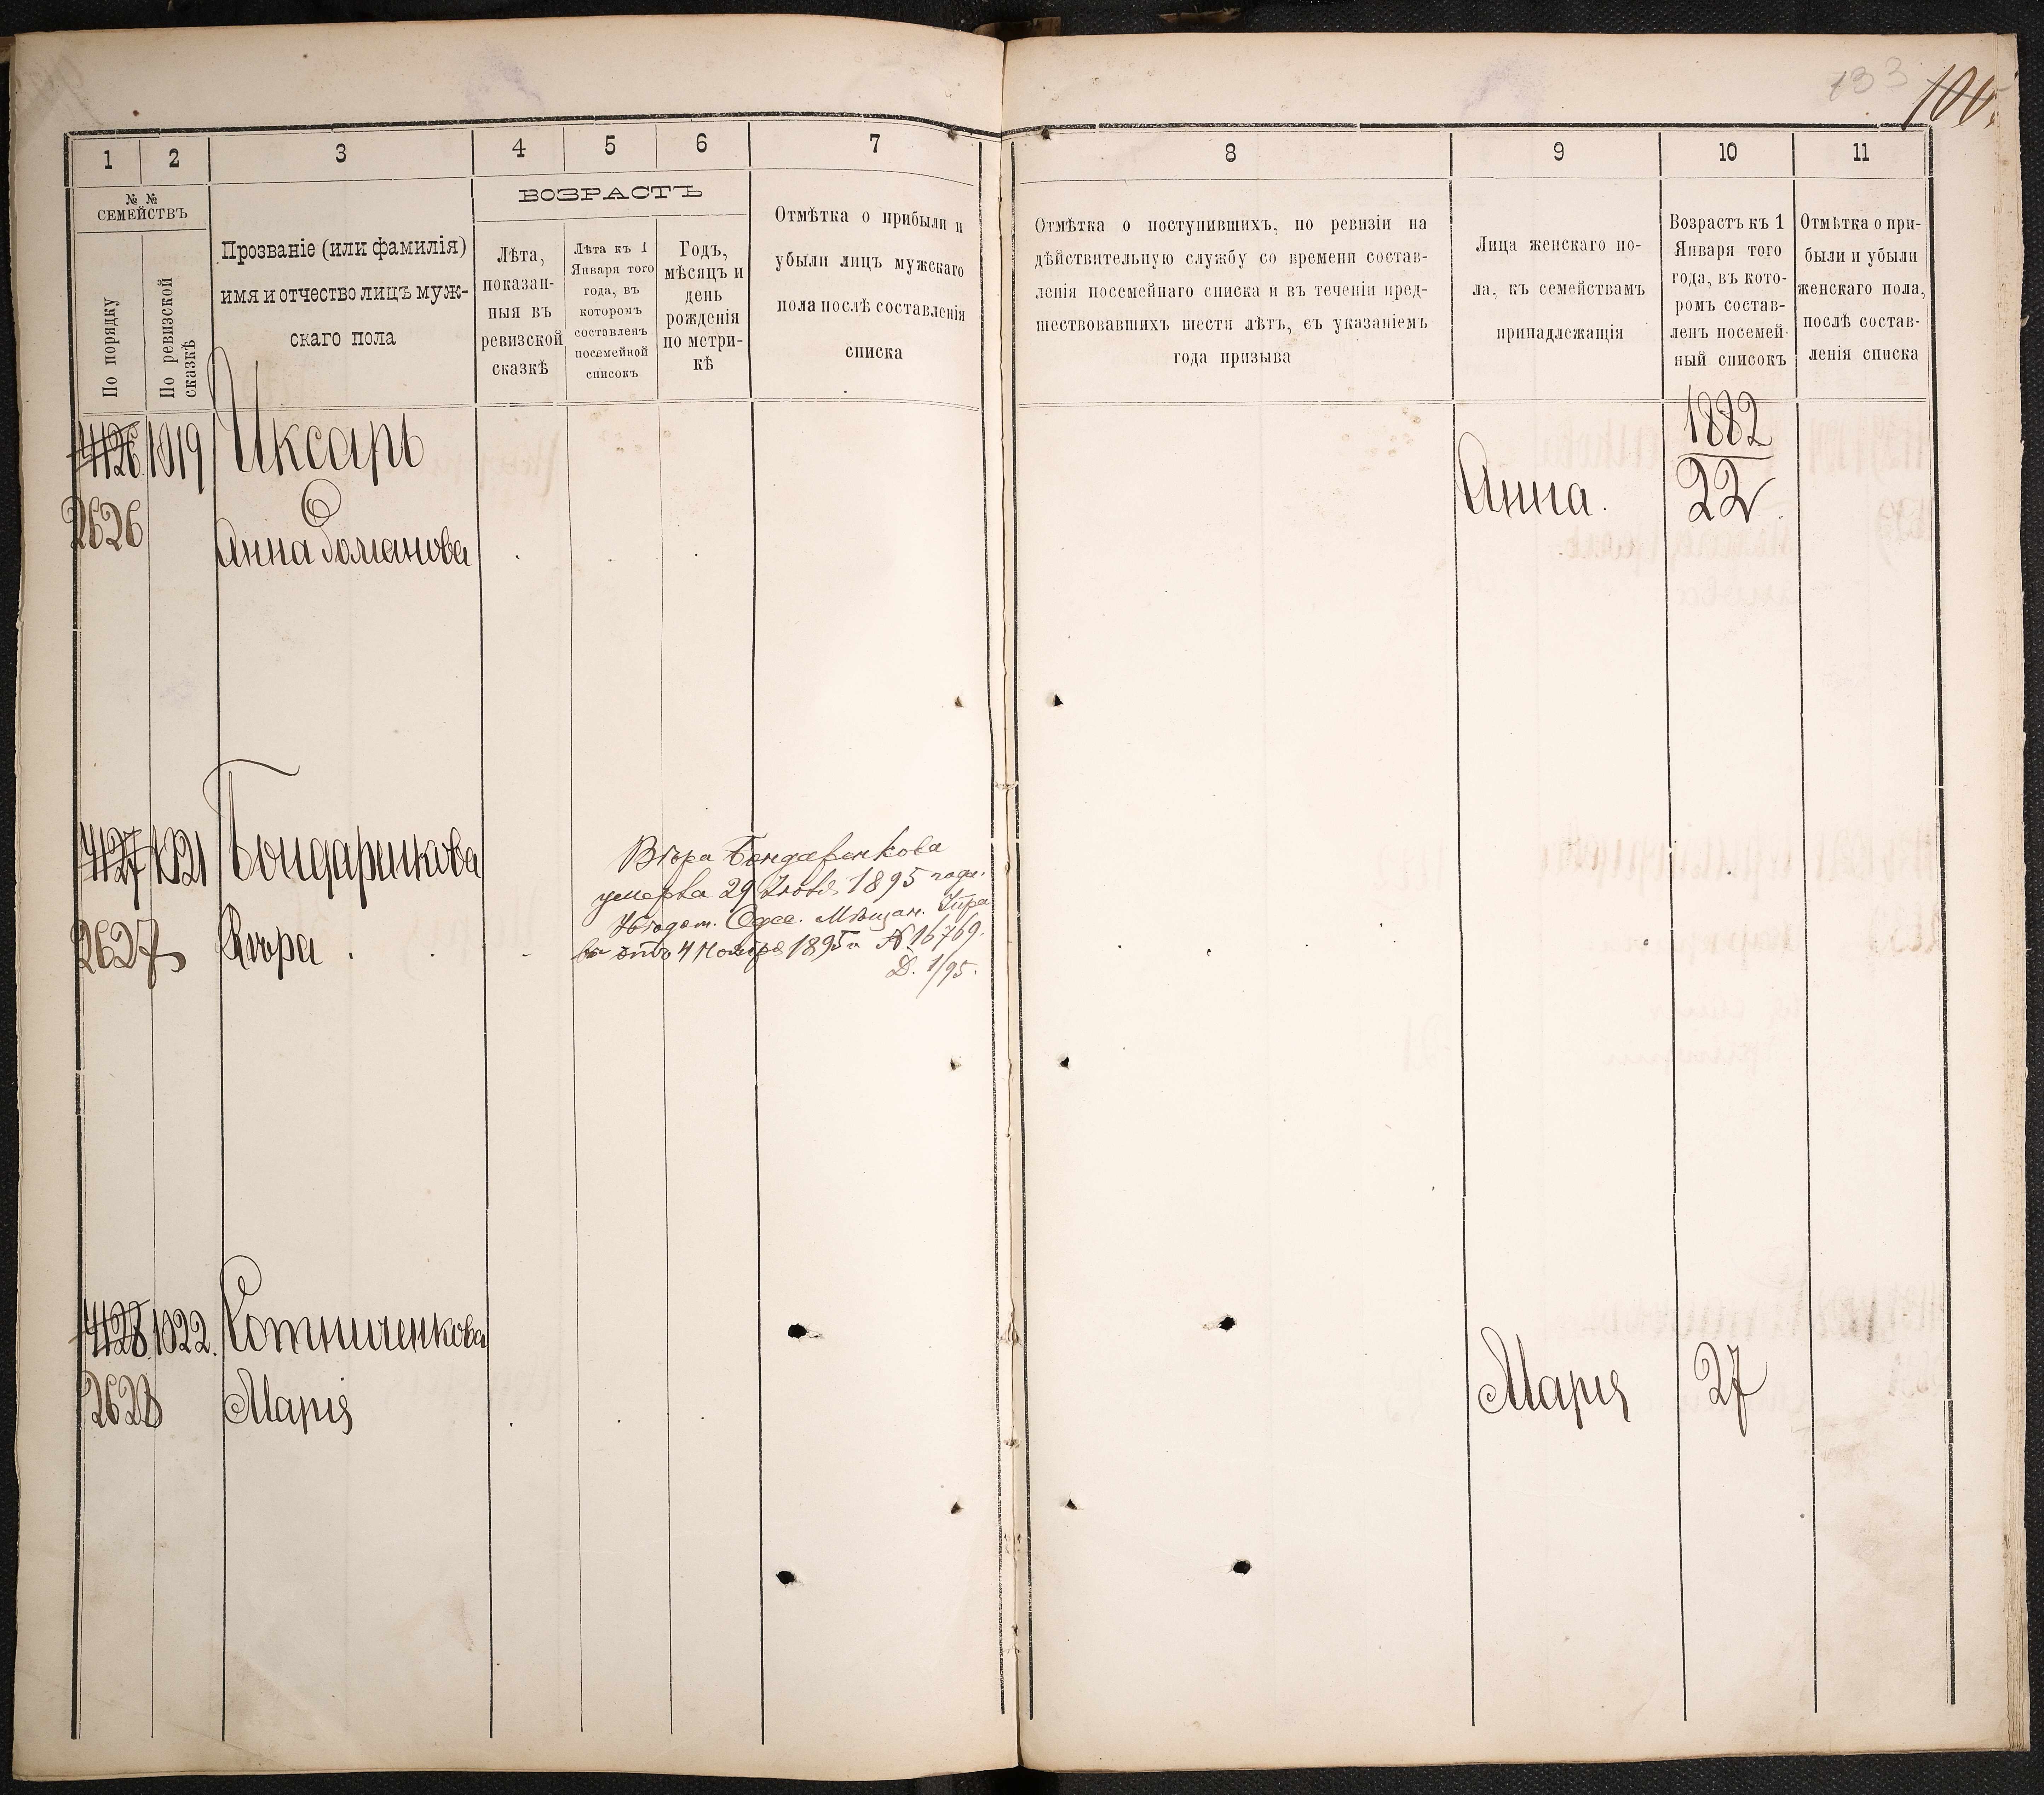 133
100
1
2
3
4
5
6
7
8
9
10
11
№ №
СЕМЕЙСТВЪ
По порядку
По ревизской сказкѣ
Прозваніе (или фамилія)
имя и отчество лицъ муж-
скаго пола
ВОЗРАСТЪ
Лѣта,
показан-
ныя въ
ревизской
сказкѣ
Лѣта къ 1
Января того
года, въ
которомъ
составленъ
посемейной
списокъ
Годъ,
мѣсяцъ и
день
рожденія
по метри-
кѣ
Отмѣтка о прибыли и
убыли лицъ мужскаго
пола послѣ составленія
списка
Отмѣтка о поступившихъ, по ревизіи на
дѣйствительную службу со времени состав-
ленія посемейнаго списка и въ теченіи пред-
шествовавшихъ шести лѣтъ, съ указаніемъ
года призыва
Лица женскаго по-
ла, къ семействамъ
принадлежащія
Возрастъ къ 1
Января того
года, въ кото-
ромъ состав-
ленъ посемей-
ный списокъ
Отмѣтка о при-
были и убыли
женскаго пола,
послѣ состав-
ленія списка
4126 1819 Иксарь
2626 Анна Романова
Анна.
1882
22
4127 1821 Бондаренкова
2627 Вѣра
Вѣра Бондаренкова
умерла 29 1895 года.
Одес. Мѣщан. Упра
вы отъ 4 Ноября 1895 г. № 16769.
Д. 1/95.
4128 1822. Сотниченкова
2628 Марія
Марія
27